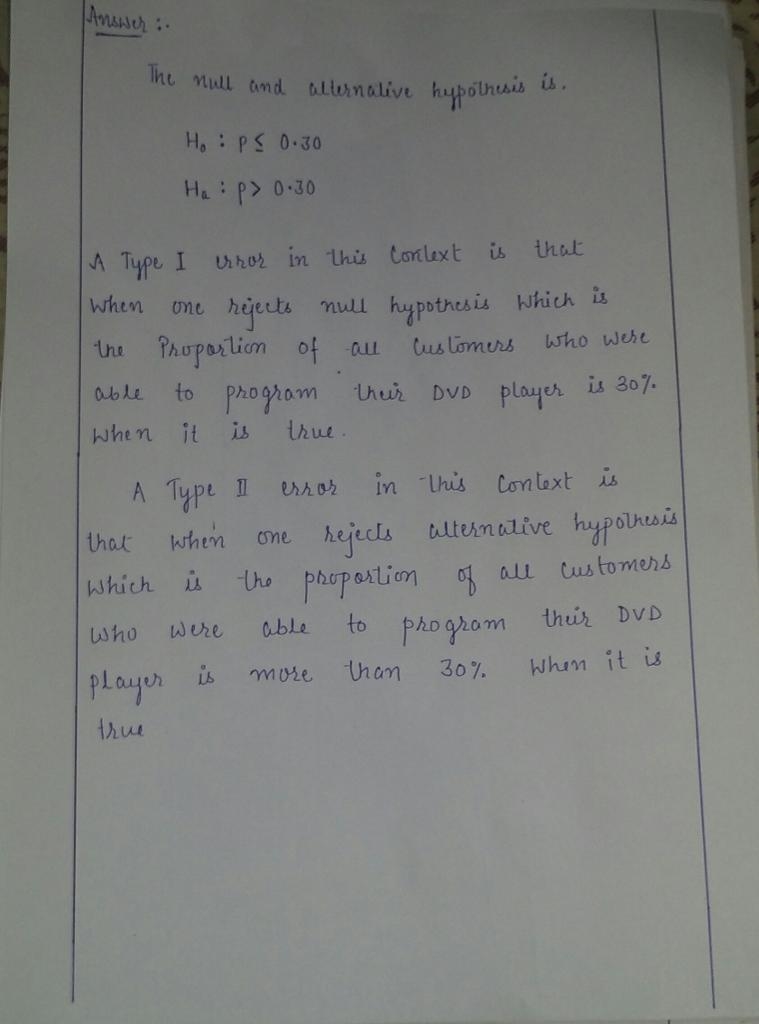 Answer :-
The null and alternative hypothesis is.
H₀ : p ≤ 0.30
Hₐ : p > 0.30
A Type I error in this Context is that
When one rejects null hypothesis Which is
the Proportion of all Customers who were
able to program their DVD player is 30%.
When it is true.
A Type II error in this Context is
that when one rejects alternative hypothesis
Which is the proportion of all Customers
who were able to program their DVD
player is more than 30%. When it is
true